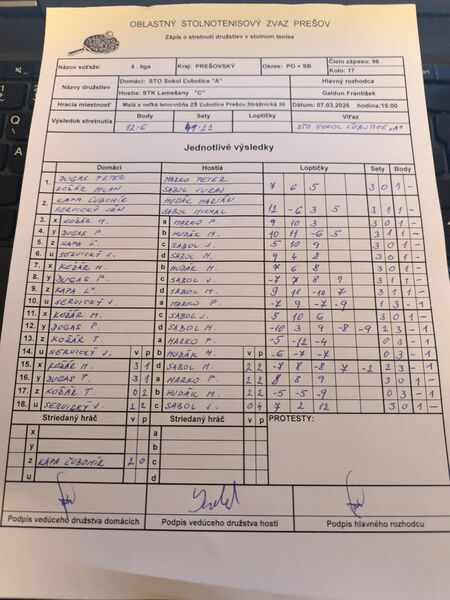 OBLASTNÝ STOLNOTENISOVÝ ZVAZ PREŠOV
Zápis o stretnutí družstiev v stolnom tenise
Názov súťaže: 5. liga Kraj: PREŠOVSKÝ Okres: PO + SB Číslo zápasu: 98
Kolo: 17
Názvy družstiev Domáci: STO Sokol Ľubotice "A" Hlavný rozhodca
Hostia: STK Lemešany "C" Galdun František
Hracia miestnosť Malá a veľká telocvičňa ZŠ Ľubotice Prešov,Strážnická 26 Dátum: 07.03.2026 hodina:15:00
Výsledok stretnutia Body Sety Loptičky Víťaz
12:6 41:22 STO SOKOL ĽUBOTICE "A"
Jednotlivé výsledky
Domáci Hostia Loptičky Sety Body
1. DUGAS PETER HARKO PETER
KOŽÁR MILAN SABOL JURAJ 7 6 5 3 0 1 -
2. KAPA ĽUBOMÍR HUDÁK MARIÁN
SERVICKÝ JÁN SABOL MICHAL 12 -6 3 5 3 1 1 -
3. x KOŽÁR M. a HARKO P. 9 10 3 3 0 1 -
4. y DUGAS P. b HUDÁK M. 10 11 -6 5 3 1 1 -
5. z KAPA Ľ. c SABOL J. 5 10 9 3 0 1 -
6. u SERVICKÝ J. d SABOL M. 9 4 8 3 0 1 -
7. x KOŽÁR M. b HUDÁK M. 7 6 8 3 0 1 -
8. y DUGAS P. c SABOL J. -7 7 8 9 3 1 1 -
9. z KAPA Ľ. d SABOL M. 9 11 -10 7 3 1 1 -
10. u SERVICKÝ J. a HARKO P. -7 9 -7 -9 1 3 - 1
11. x KOŽÁR M. c SABOL J. 5 10 6 3 0 1 -
12. y DUGAS P. d SABOL M. -10 3 9 -8 -9 2 3 - 1
13. z KOŽÁR T. a HARKO P. -5 -12 -4 0 3 - 1
14. u SERVICKÝ J. v p b HUDÁK M. v p -6 -7 -7 0 3 - 1
15. x KOŽÁR M. 3 1 d SABOL M. 2 2 -7 8 -8 7 -2 2 3 - 1
16. y DUGAS P. 3 1 a HARKO P. 2 2 8 8 9 3 0 1 -
17. z KOŽÁR T. 0 2 b HUDÁK M. 2 2 -5 -5 -9 0 3 - 1
18. u SERVICKÝ J. 2 2 c SABOL J. 0 4 7 2 12 3 0 1 -
Striedaný hráč v p Striedaný hráč v p PROTESTY:
x a
y b
z KAPA ĽUBOMÍR 2 0 c
u d
Podpis vedúceho družstva domácich Podpis vedúceho družstva hostí Podpis hlavného rozhodcu